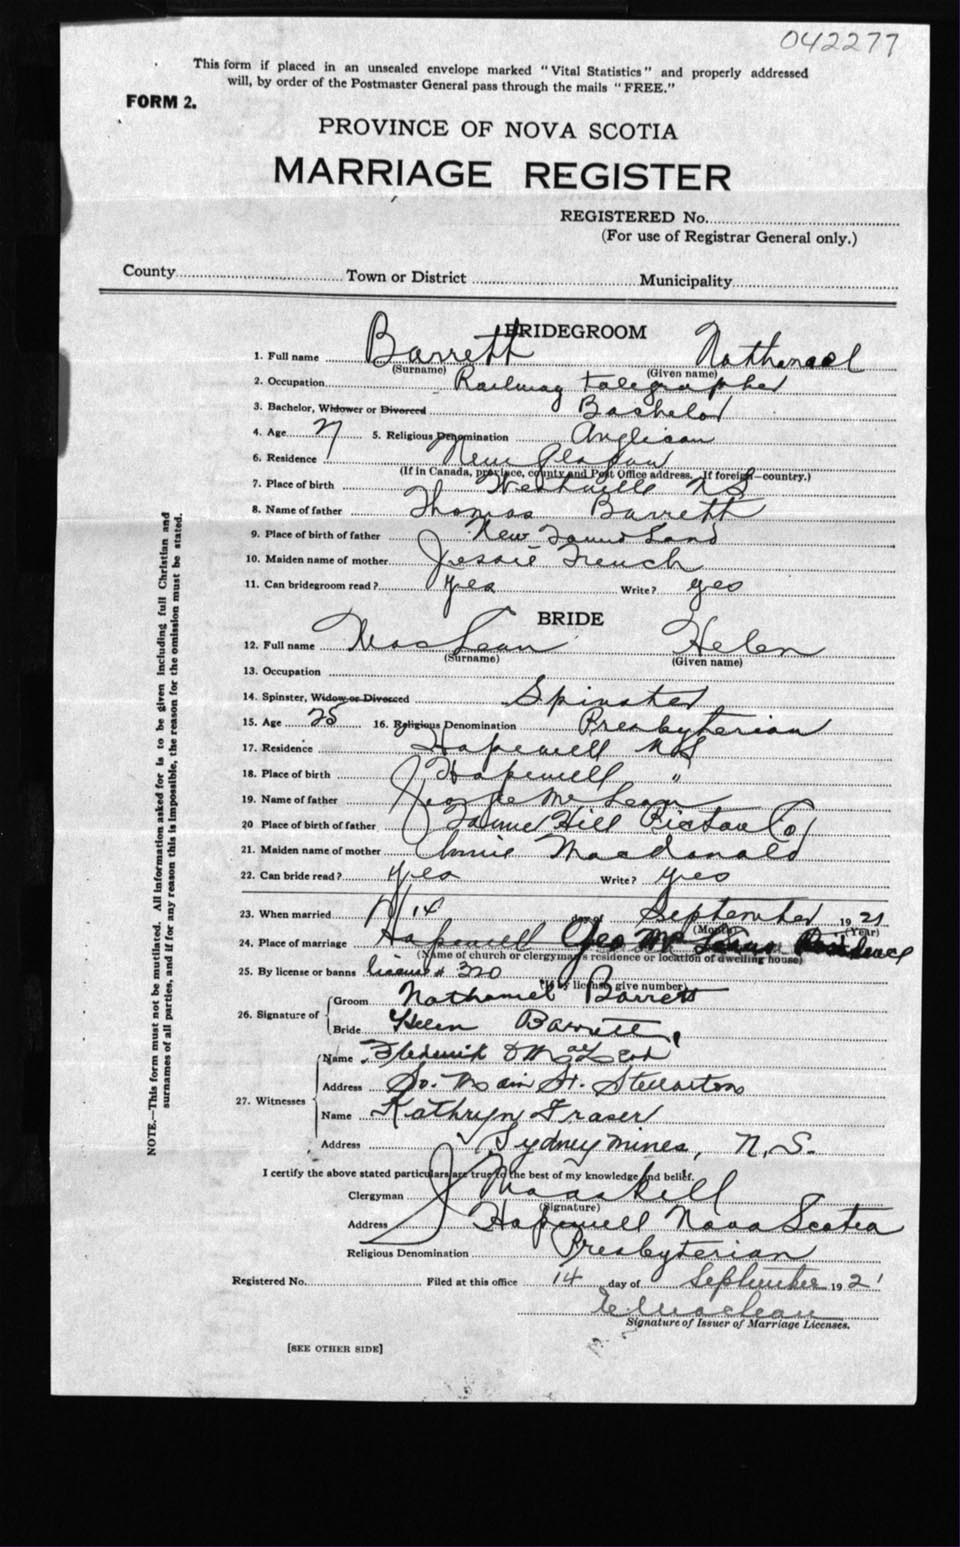 042277
This form if placed in an unsealed envelope marked "Vital Statistics" and properly addressed
will, by order of the Postmaster General pass through the mails "FREE."
FORM 2.
PROVINCE OF NOVA SCOTIA
MARRIAGE REGISTER
REGISTERED No.
(For use of Registrar General only.)
County Town or District Municipality
BRIDEGROOM
1. Full name Barrett Nathanael
(Surname) (Given name)
2. Occupation Railway telegrapher
3. Bachelor, Widower or Divorced Bachelor
4. Age 27 5. Religious Denomination Anglican
6. Residence New Glasgow
(If in Canada, province, county and Post Office address. If foreign—country.)
7. Place of birth Westville NS
8. Name of father Thomas Barrett
9. Place of birth of father New Found Land
10. Maiden name of mother Jessie French
11. Can bridegroom read? yes Write? yes
BRIDE
12. Full name MacLean Helen
(Surname) (Given name)
13. Occupation
14. Spinster, Widow or Divorced Spinster
15. Age 25 16. Religious Denomination Presbyterian
17. Residence Hopewell NS
18. Place of birth Hopewell "
19. Name of father George McLean
20 Place of birth of father Hill Pictou Co
21. Maiden name of mother Annie Macdonald
22. Can bride read? yes Write? yes
23. When married 14 day of September 1921
(Month) (Year)
24. Place of marriage Hopewell Geo Mc Leans Residence
(Name of church or clergyman's residence or location of dwelling house)
25. By license or banns license # 320
(If by license, give number)
26. Signature of Groom Nathaniel Barrett
Bride Helen Barrett
27. Witnesses Name Frederick D MacLeod
Address So. Main St. Stellarton
Name Kathryn Fraser
Address Sydney Mines, N.S.
I certify the above stated particulars are true to the best of my knowledge and belief.
Clergyman J Maaskill
(Signature)
Address Hopewell Nova Scotia
Religious Denomination Presbyterian
Registered No. Filed at this office 14 day of September 1921
E Maclean
Signature of Issuer of Marriage Licenses.
[SEE OTHER SIDE]
NOTE.—This form must not be mutilated. All information asked for is to be given including full Christian and
surnames of all parties, and if for any reason this is impossible, the reason for the omission must be stated.